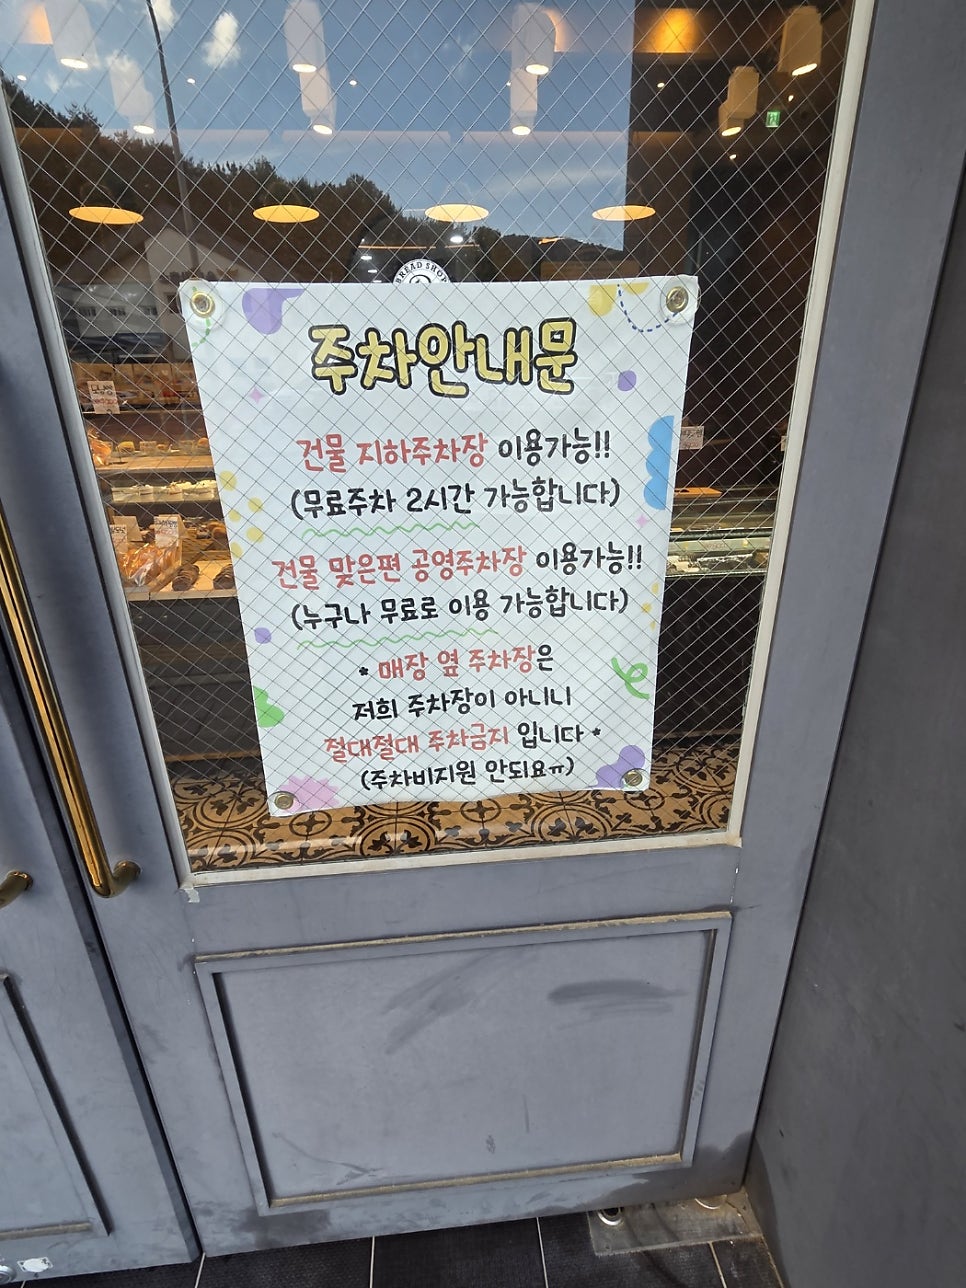 BREAD SHOP
주차안내문
건물 지하주차장 이용가능!!
(무료주차 2시간 가능합니다)
건물 맞은편 공영주차장 이용가능!!
(누구나 무료로 이용 가능합니다)
* 매장 옆 주차장은
저희 주차장이 아니니
절대절대 주차금지 입니다 *
(주차비지원 안되요ㅠ)